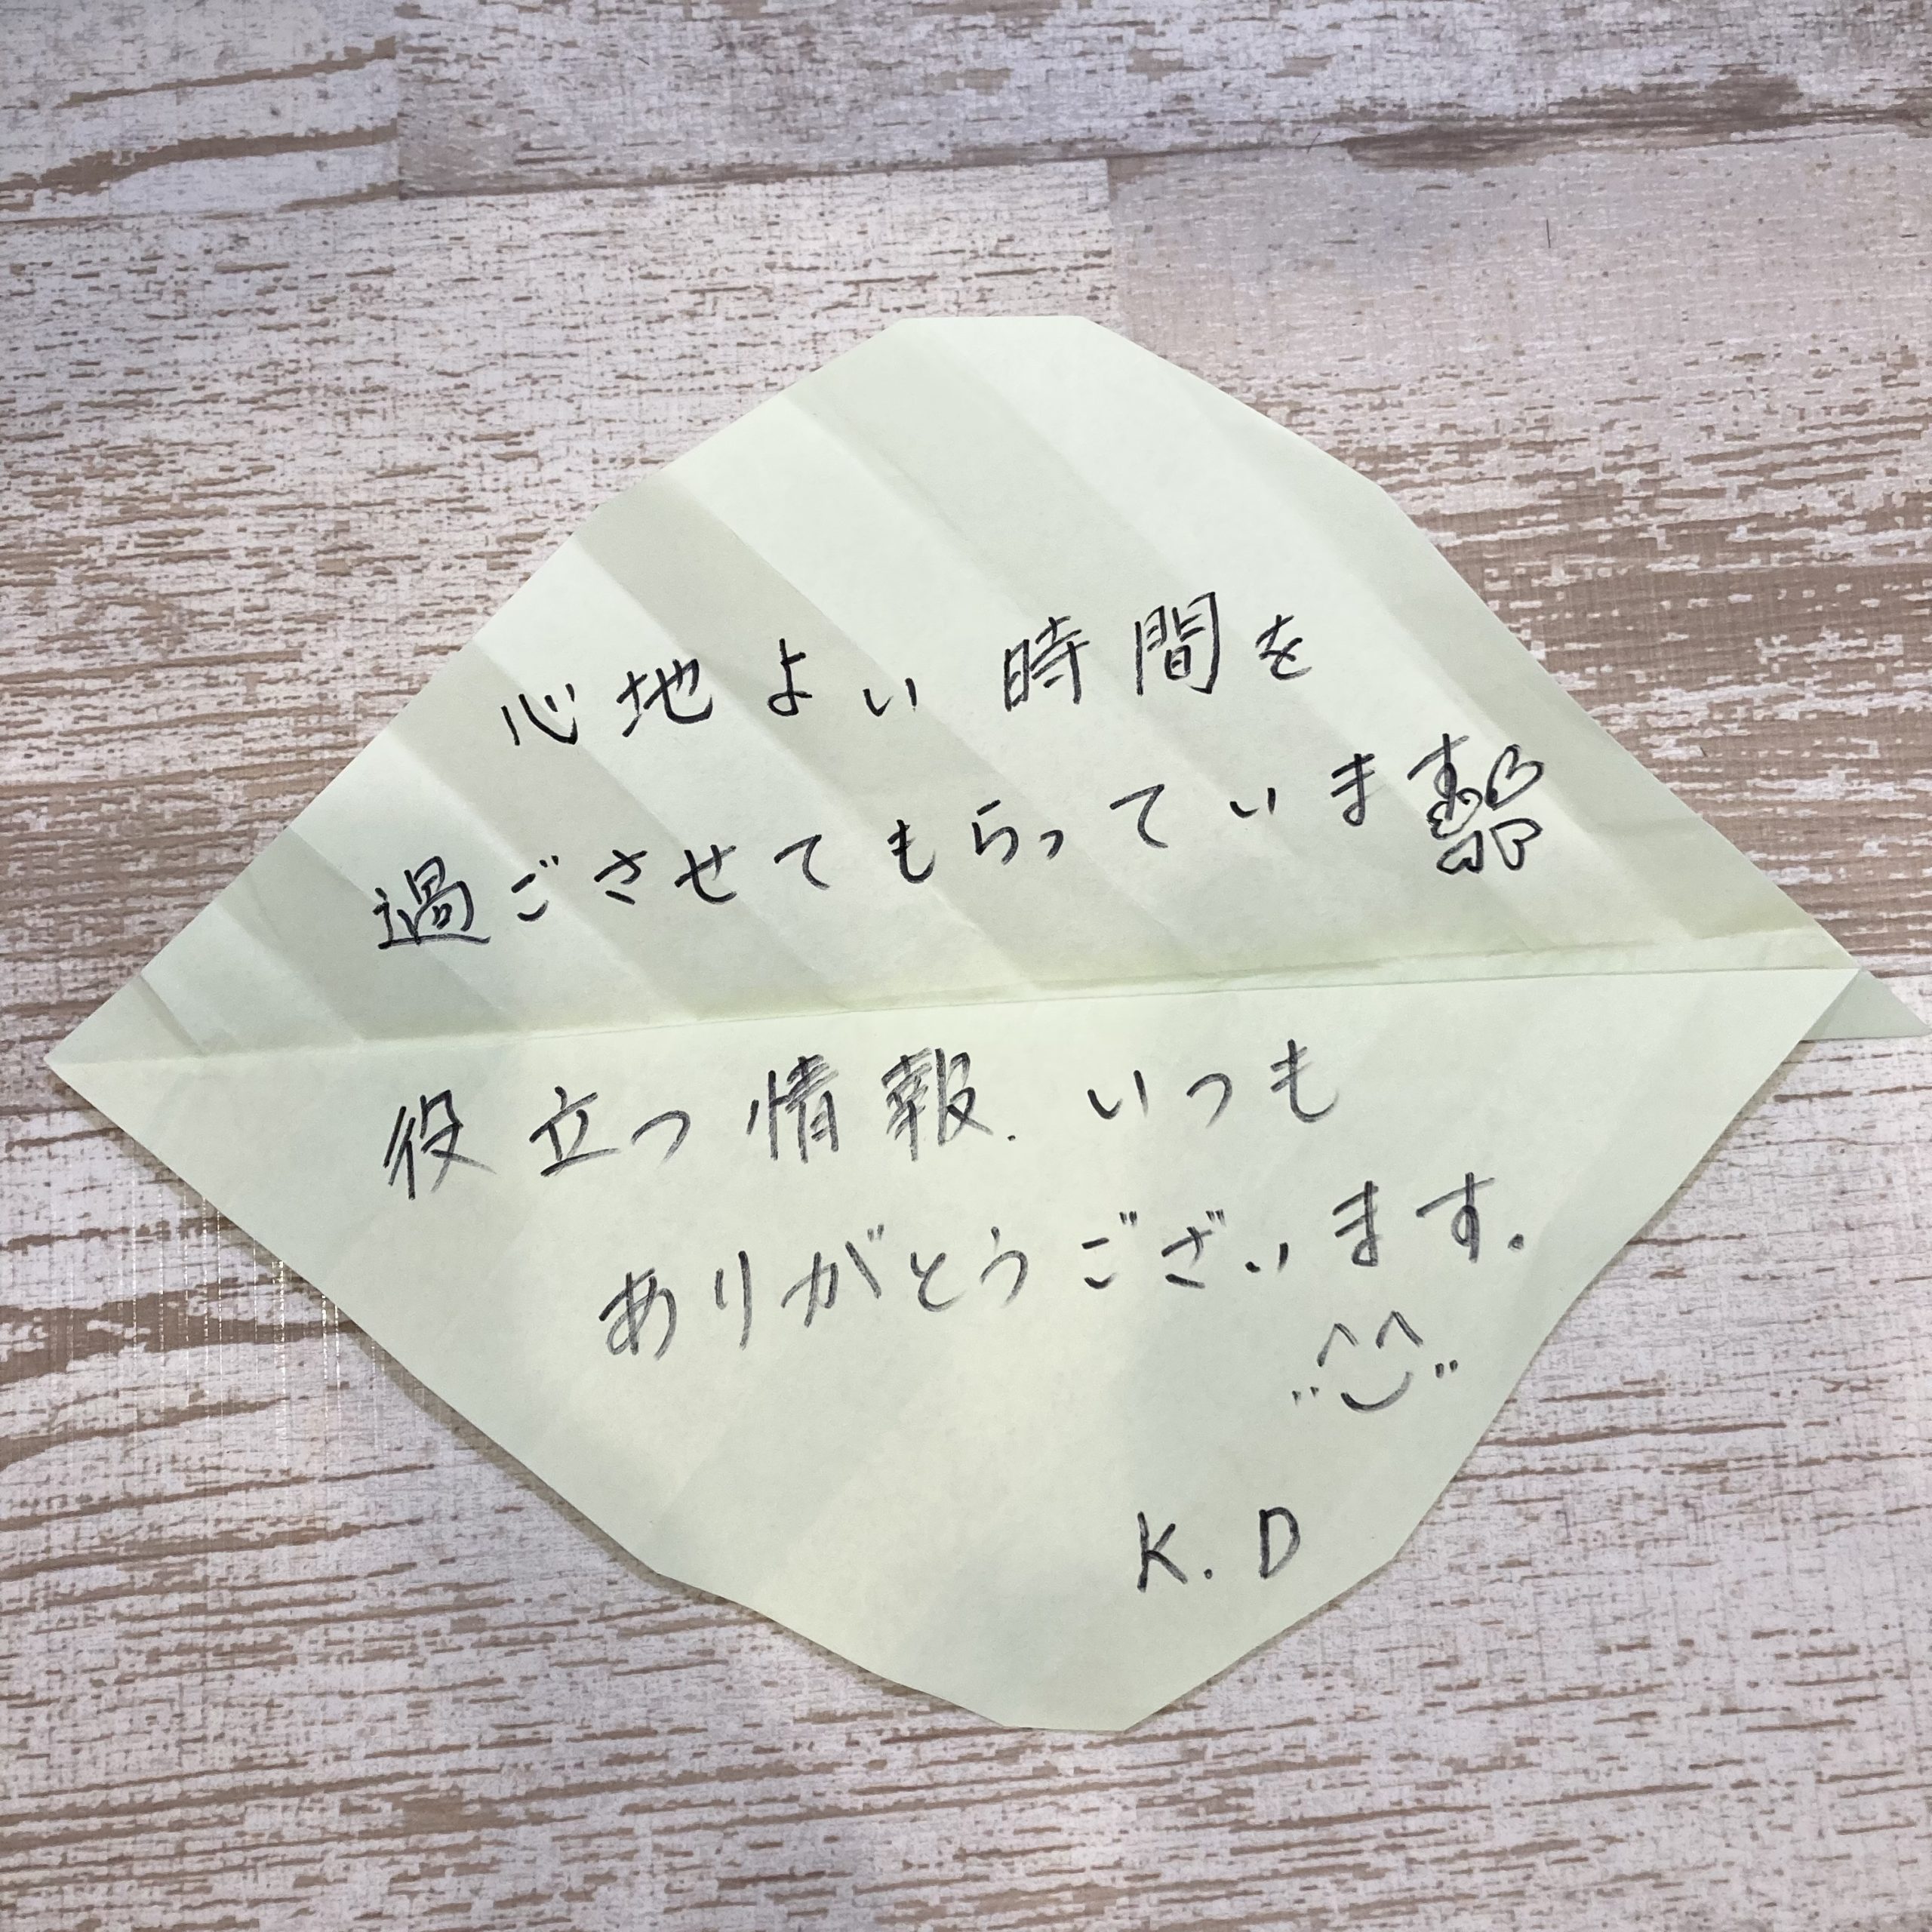 心地よい時間を
過ごさせてもらっています
役立つ情報、いつも
ありがとうございます。
K.D